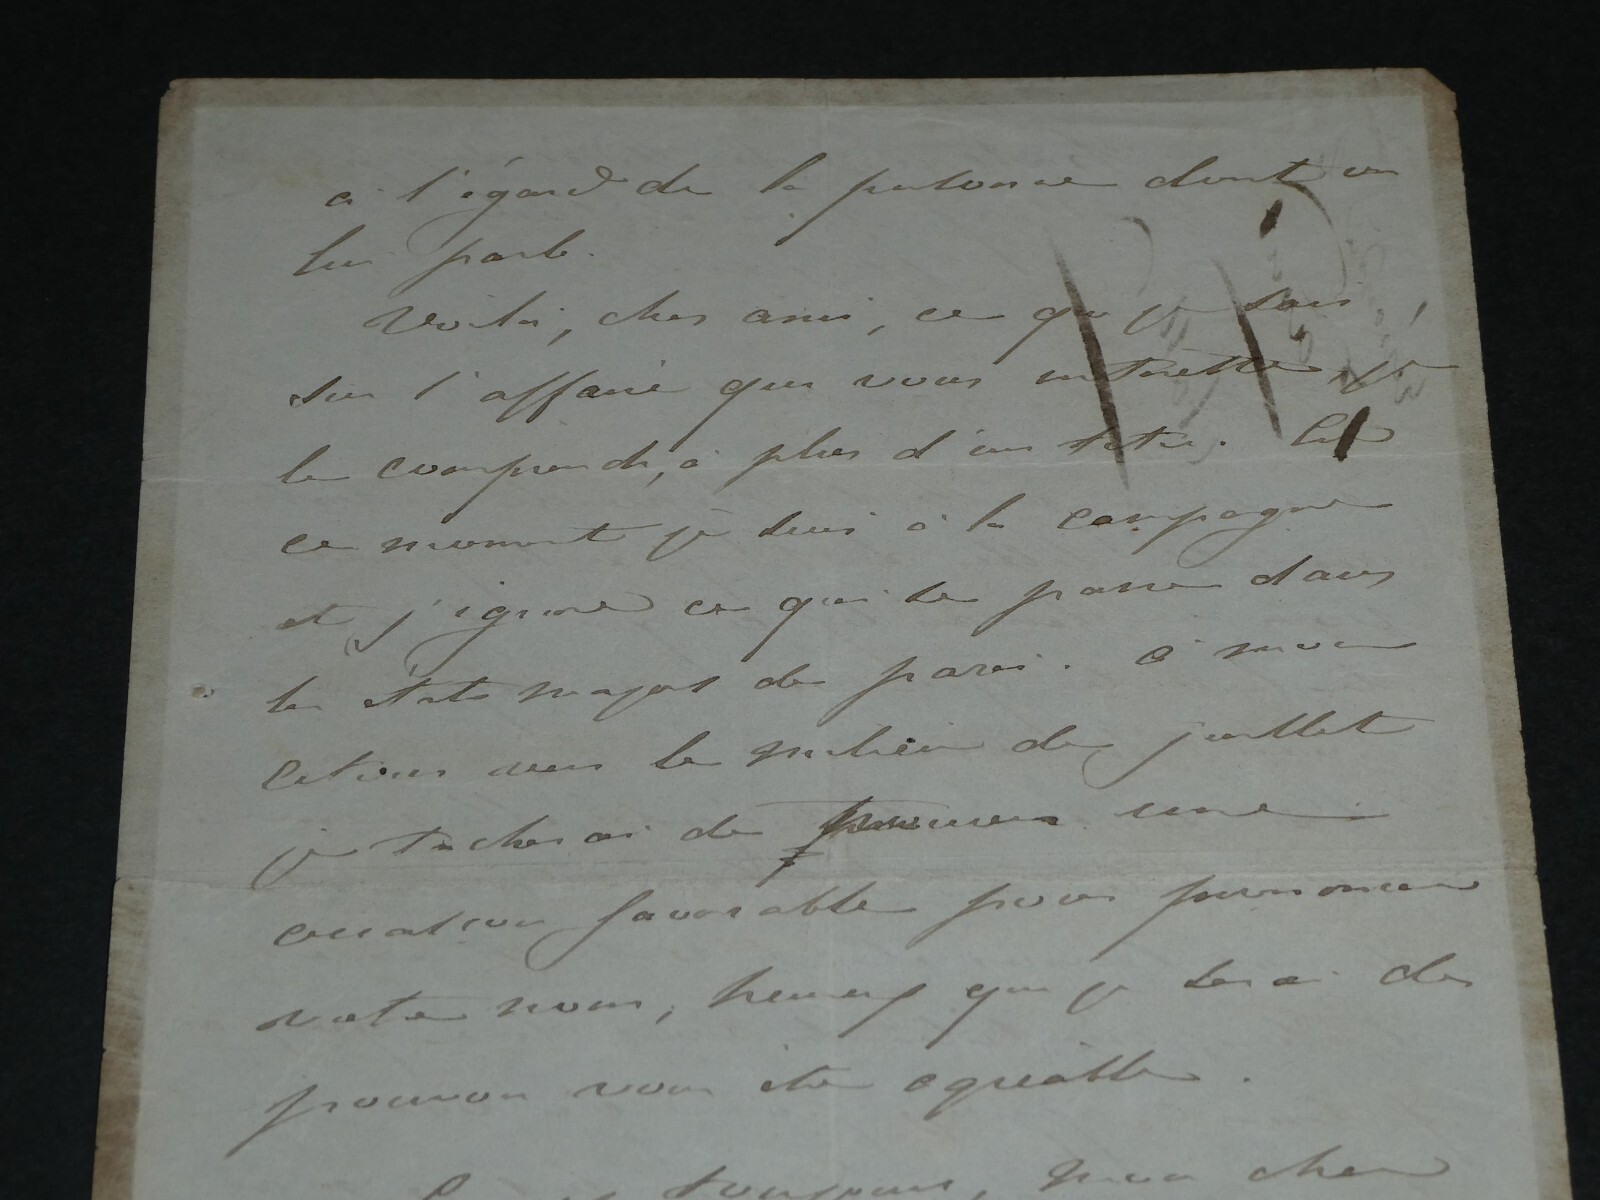 à l'égard de la personne dont on
lui parle.
Voilà, cher ami, ce que je sais
sur l'affaire qui vous intéresse, je
le comprends, à plus d'un titre. En
ce moment je suis à la campagne
et j'ignore ce qui se passe dans
les états majors de paris. à mon
retour vers le milieu de juillet
je tacherai de trouver une
occasion favorable pour prononcer
votre nom, heureux que je serai de
pouvoir vous être agréable.
toujours, mon cher